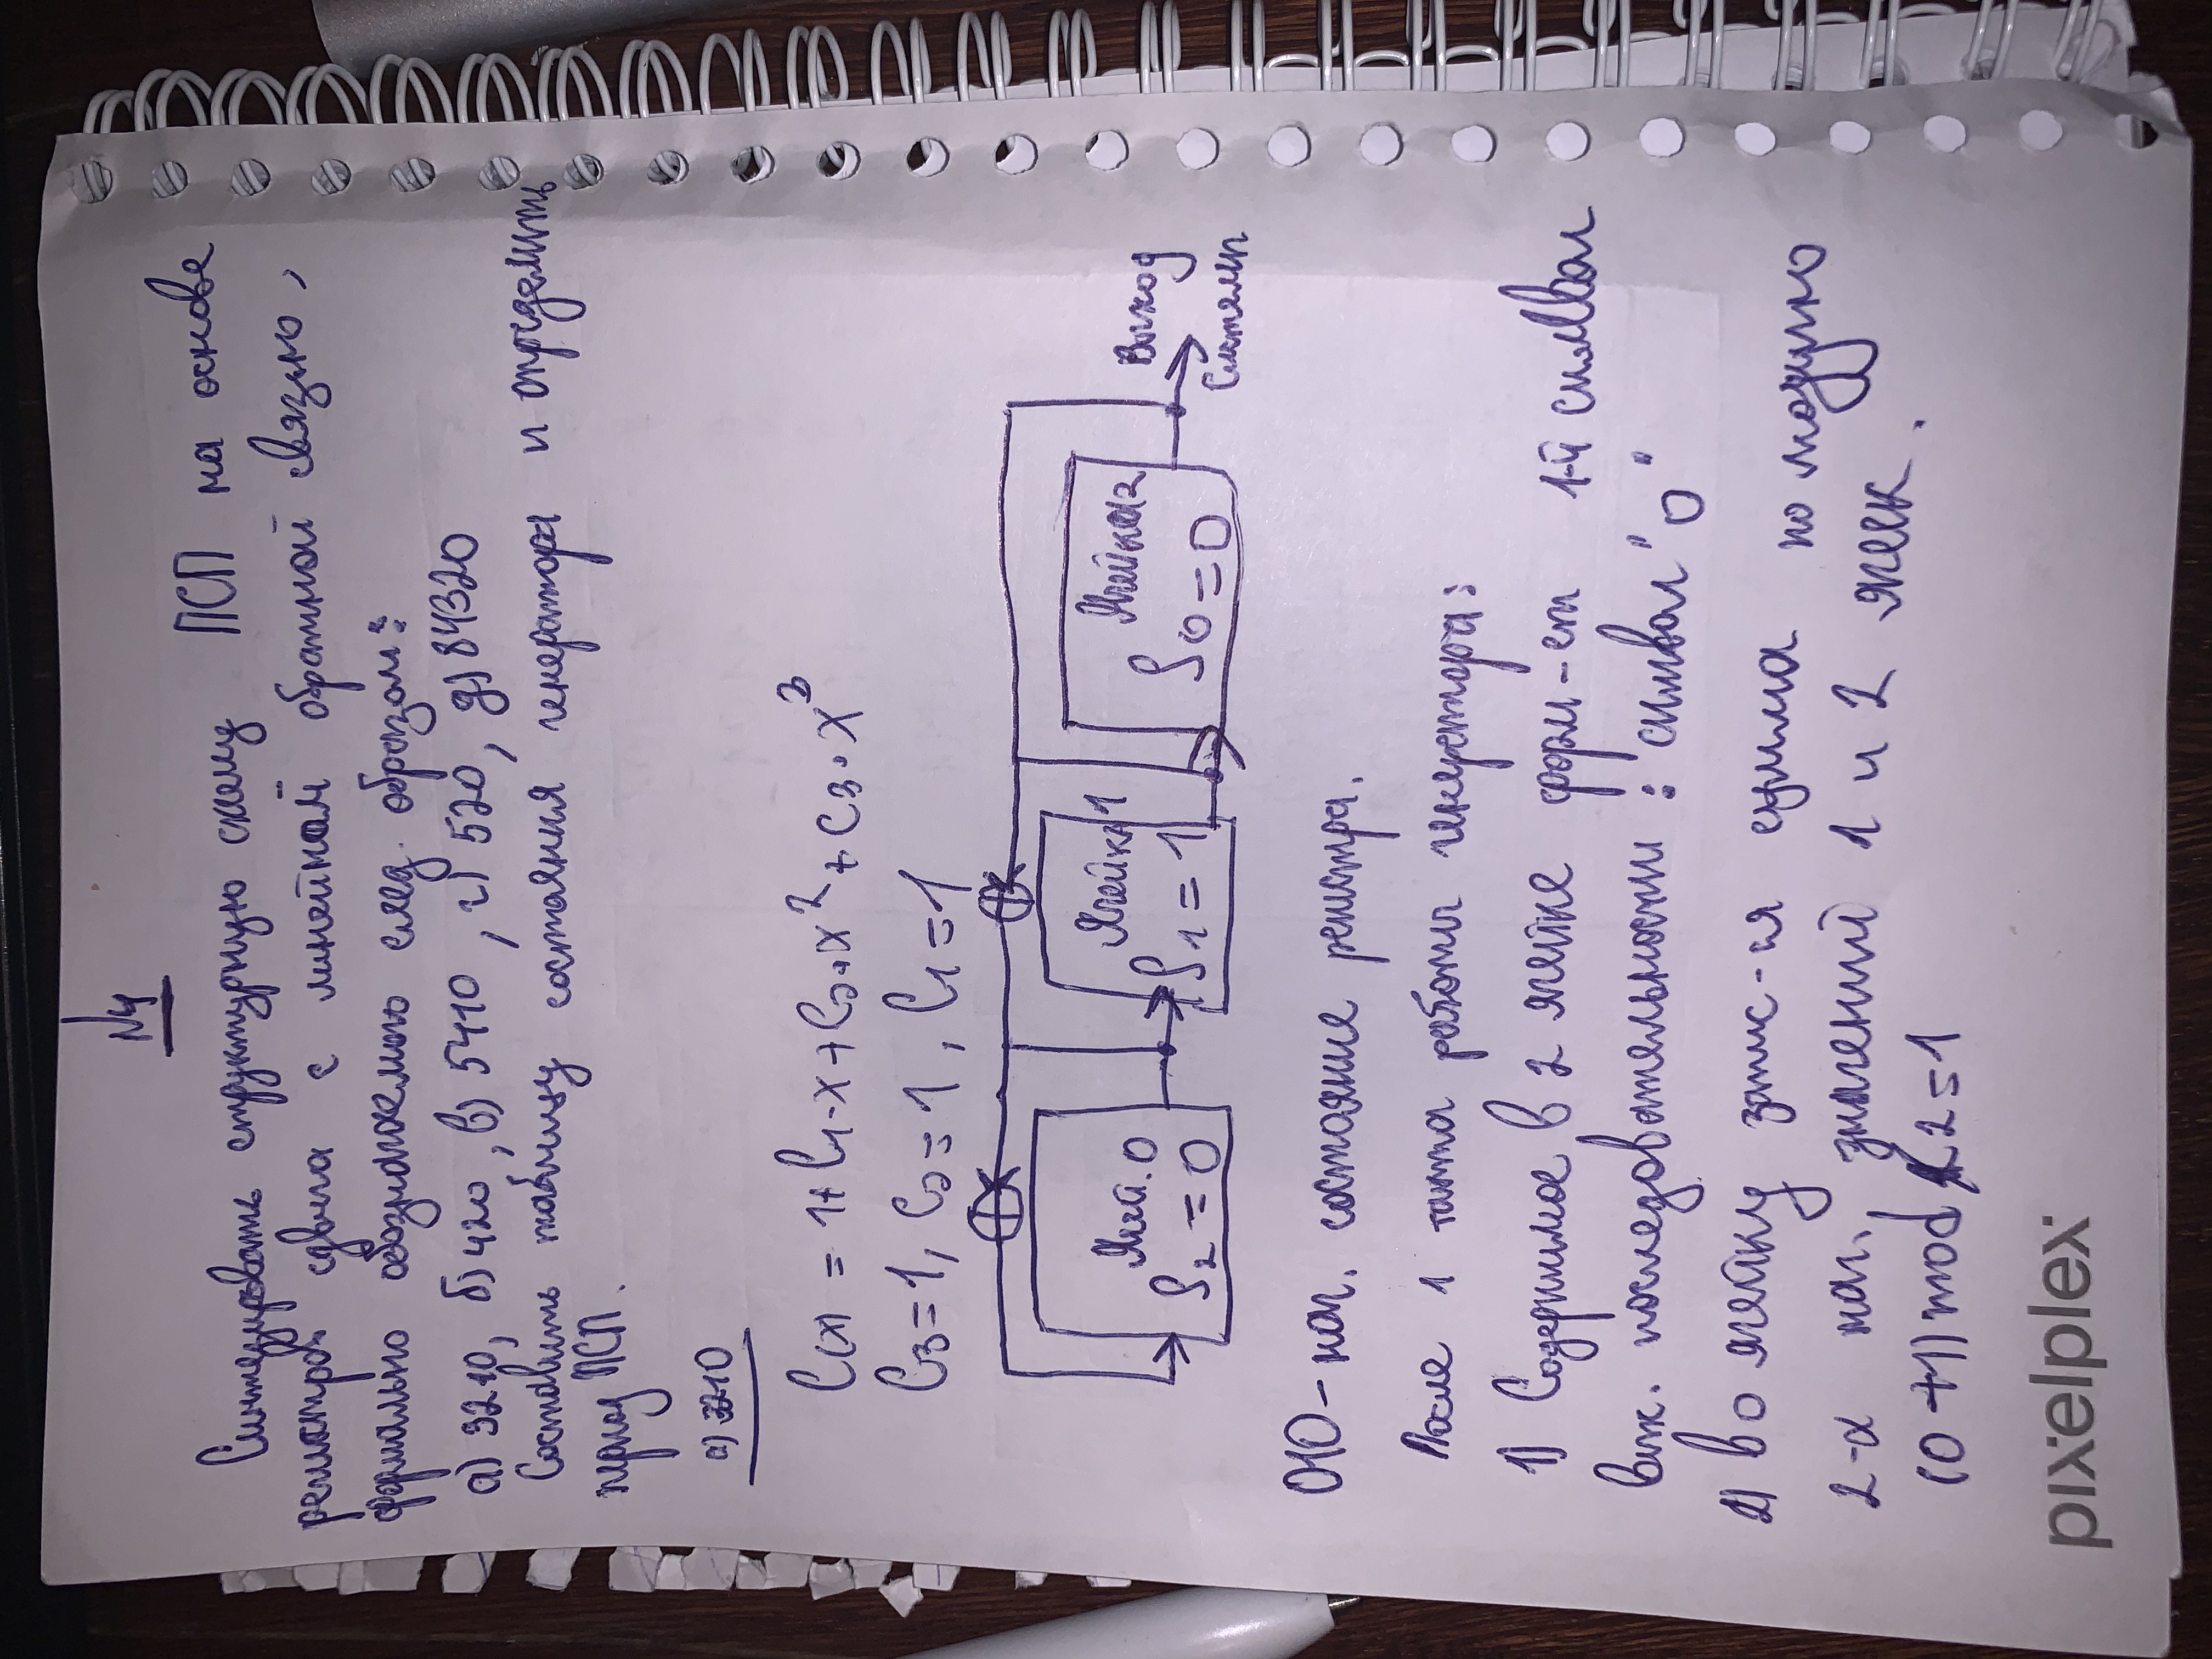 №4
Синтезировать структурную схему ПСП на основе
регистров сдвига с линейной обратной связью,
формально обозначаемого след. образом:
а) 3210, б) 420, в) 5410, г) 520, д) 84320
Составить таблицу состояния генератора и определить
период ПСП.
а) 3210
C(x) = 1+C1·x+C2·x² + C3·x³
C3=1, C2=1, C1=1
Ячей. 0
Ячейка 1
Ячейка 2
Выход
S2=0
S1=1
S0=0
системы
010 - нач. состояние регистра.
После 1 такта работы генератора:
1) Содержимое в 2 ячейке форм-ет 1-й символ
вых. последовательности: символ "0"
2) в 0 ячейку запис-ся сумма по модулю
2-х нач. значений 1 и 2 ячеек.
(0+1) mod 2=1
pixelplex